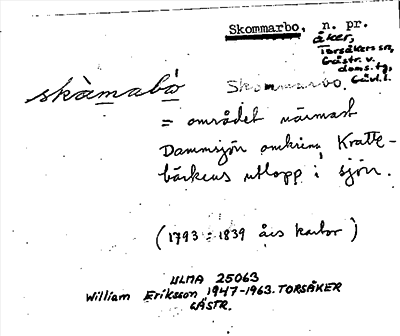 Skommarbo, n. pr.
åker,
Torsåkers sn,
Gästr. v.
doms.tg,
Gävl.l.
skàmabó Skommarbo.
= området närmast
Dammsjön omkring Kratte-
bäckens utlopp i sjön.
(1793 - 1839 års kartor)
ULMA 25063
William Eriksson 1947-1963. TORSÅKER
GÄSTR.